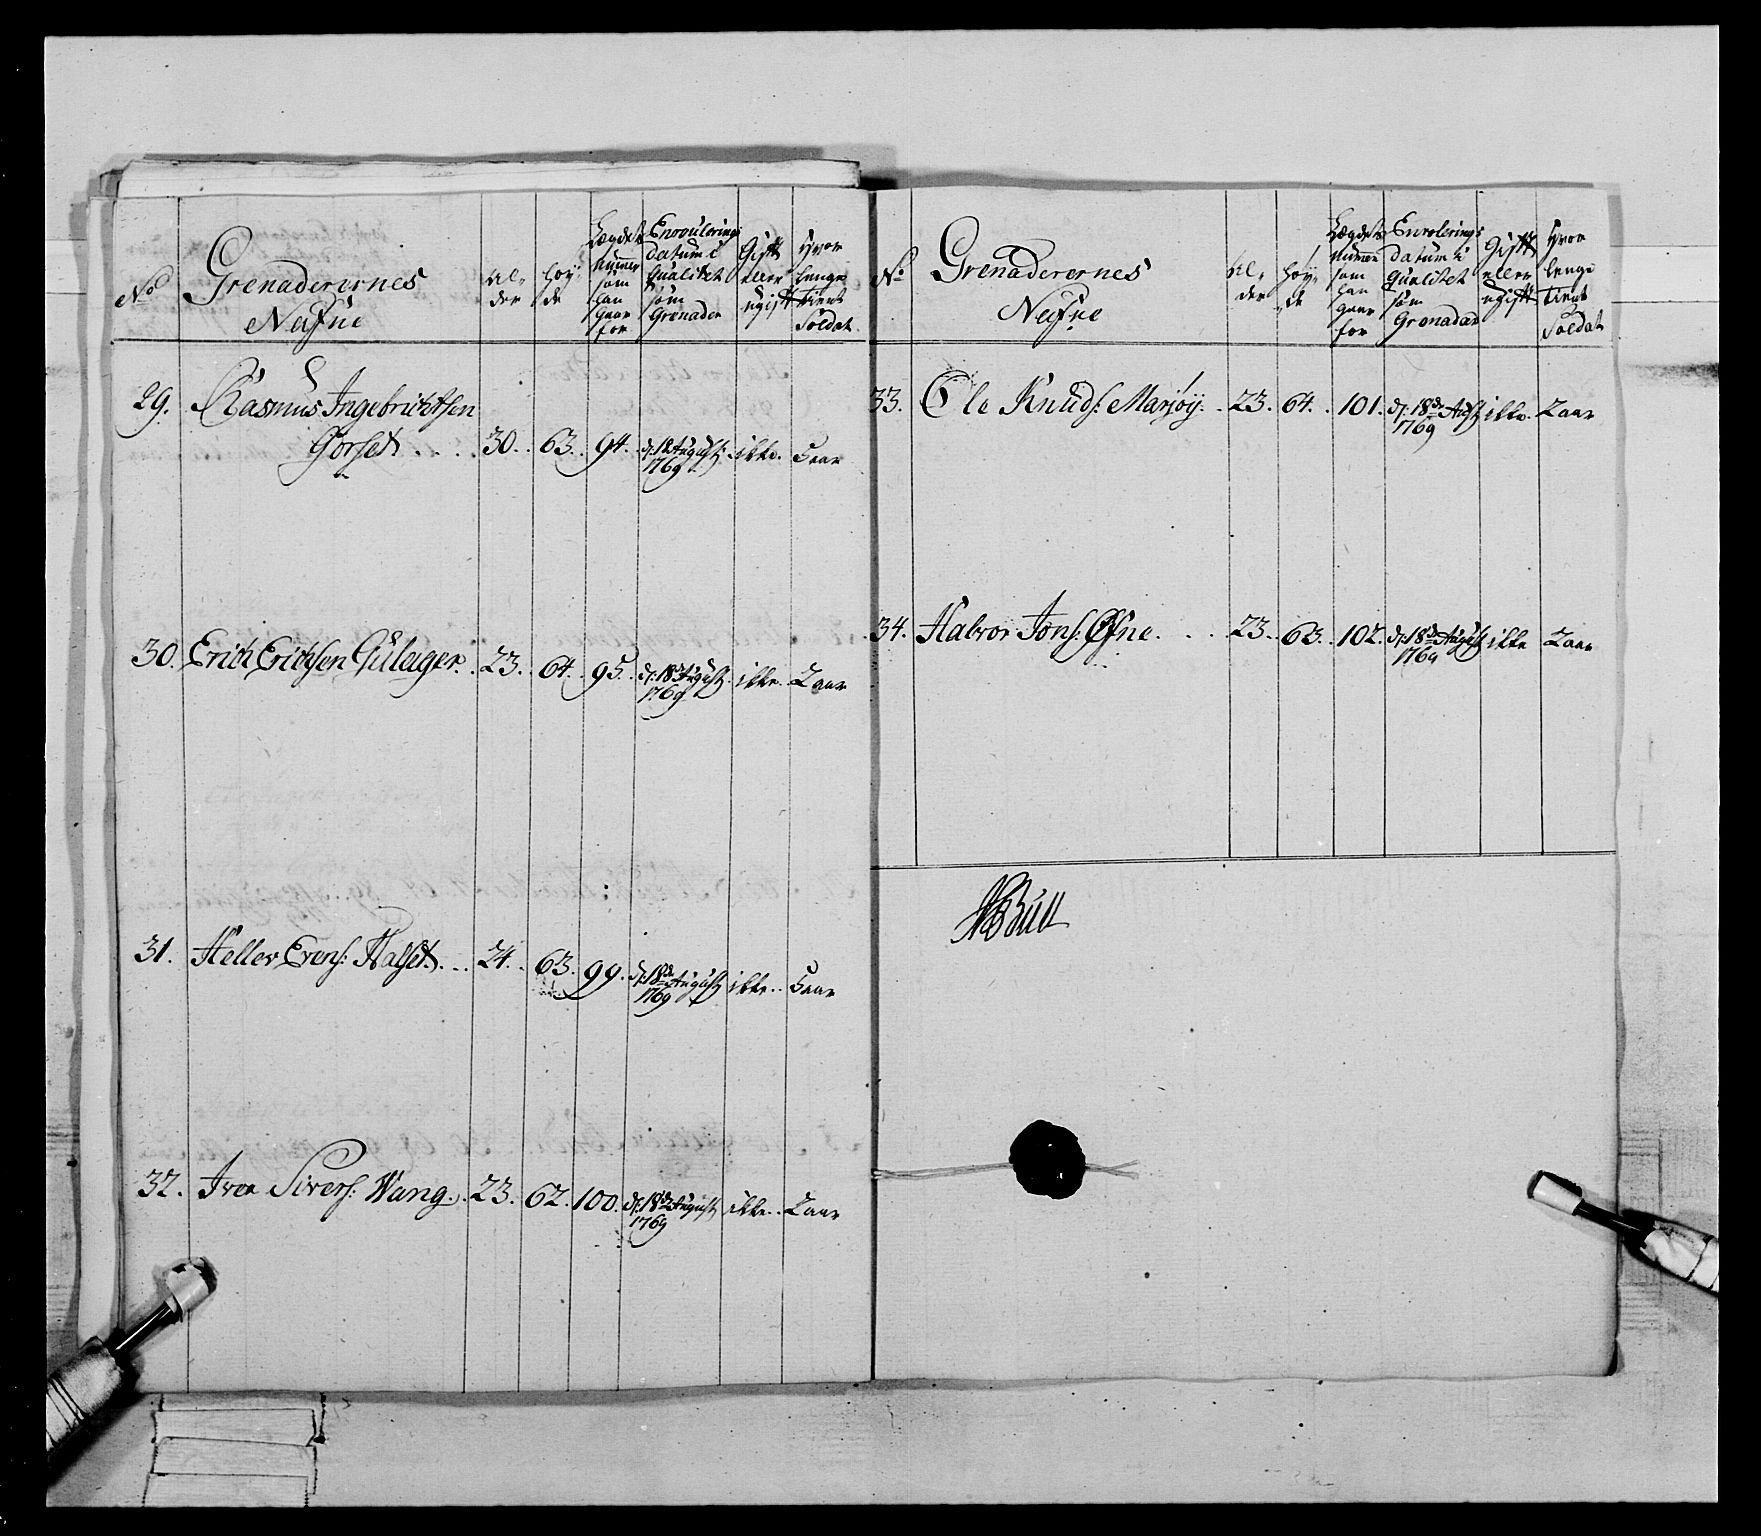 No
Grenaderernes
Nafne
Al-
der
Høy-
de
Lægdets
Numer
som
han
gaar
for
Enroulerings
datum i
Qualitet
som
Grenader
Gift
eller
ugift
Hvor
lenge
tient
Soldat
29. Rasmus Ingebrichtsen
Gorset . . . 30. 63. 94. d: 18 August: ikke. 5 aar
1769
30. Erich Erichsen Gulager. 23. 64. 95. d: 18de August. ikke. 2 aar
1769
31. Heller Evens: Halset . . . 24. 63. 99. d: 18de August ikke. 5 aar
1769
32. Iver Sivers: Wang. 23. 62. 100. d: 18de August ikke. 2 aar
1769
No
Grenaderernes
Nafne
Al-
der
Høy-
de
Lægdets
Numer
som
han
gaar
for
Enrolerings
datum i
Qualitet
som
Grenader
Gift
eller
ugift
Hvor
lenge
tient
Soldat
33. Ole Knuds: Marjøy. 23. 64. 101. d: 18de Aug ikke. 2 aar
1769
34. Halvor Jons: Øfne. . . 23. 63. 102. d: 18de August ikke 2 aar
1769
Bull